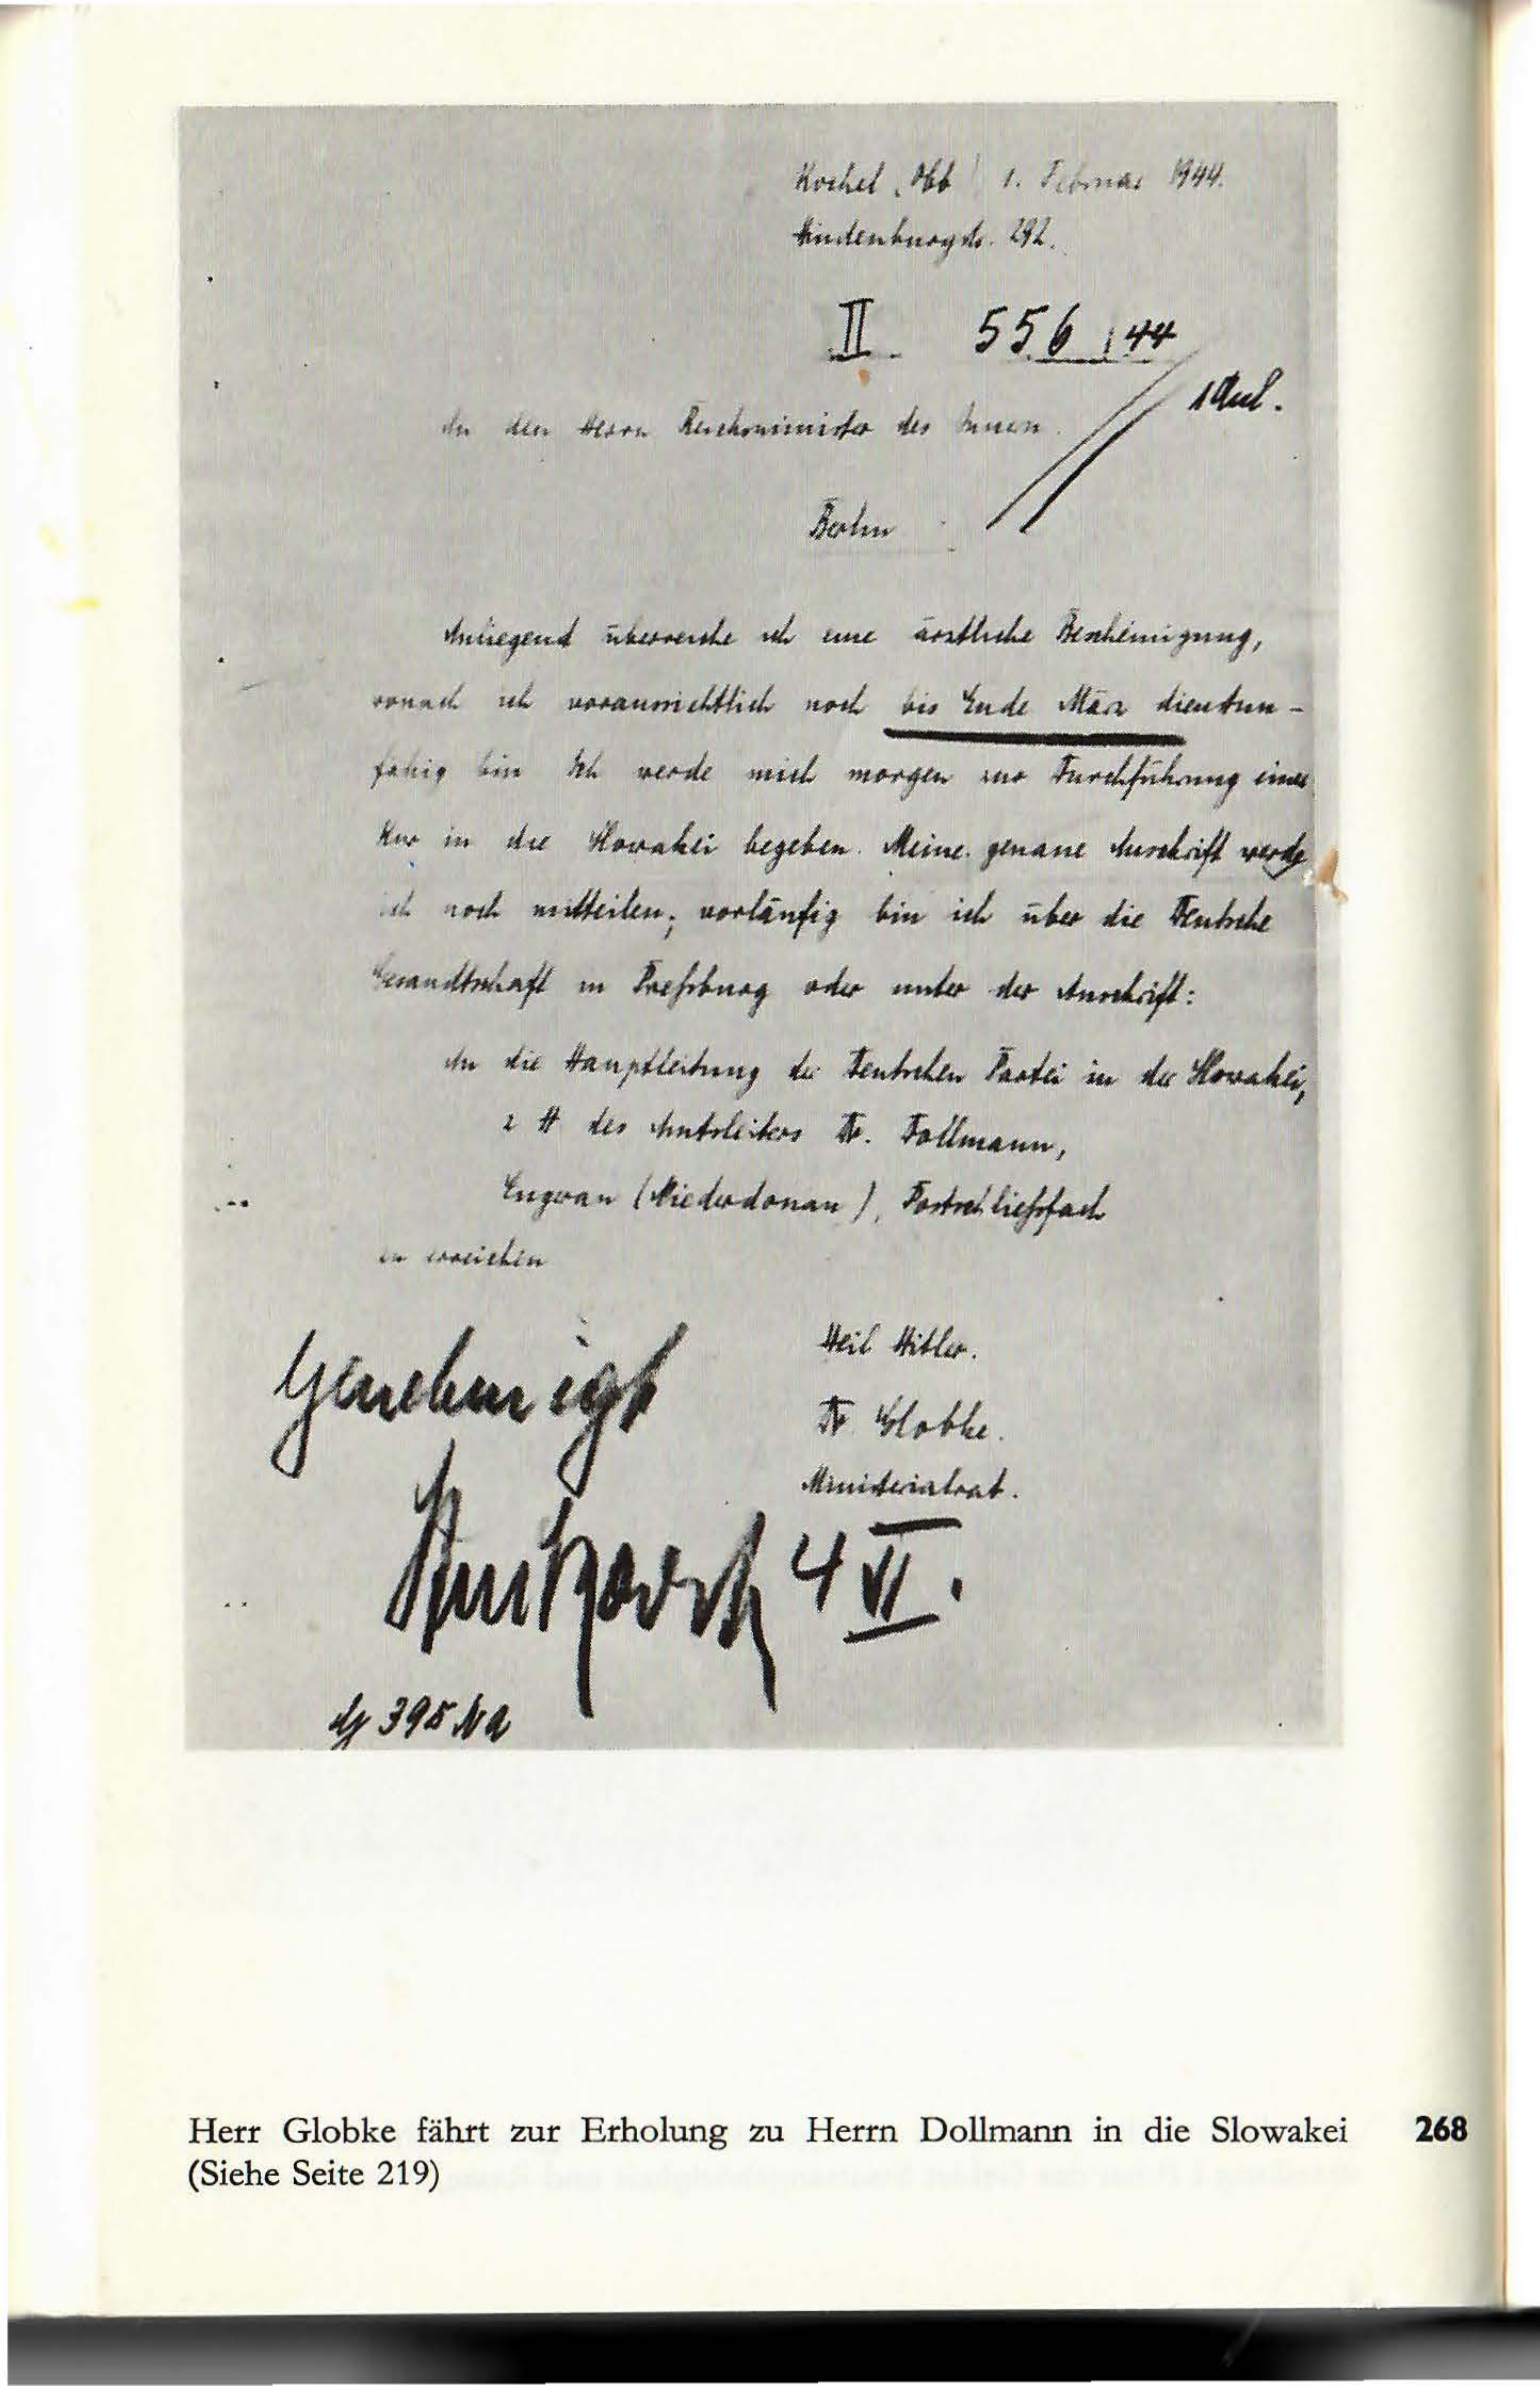 Kochel (Obb) 1. Februar 1944.
Hindenburgstr. 292.
II. 556/44
1 Anl.
An den Herrn Reichsminister des Innern
Berlin
Anliegend überreiche ich eine ärztliche Bescheinigung,
wonach ich voraussichtlich noch bis Ende März dienstun-
fähig bin. Ich werde mich morgen zur Durchführung einer
Kur in die Slowakei begeben. Meine genaue Anschrift werde
ich noch mitteilen; vorläufig bin ich über die Deutsche
Gesandtschaft in Preßburg oder unter der Anschrift:
An die Hauptleitung der Deutschen Partei in der Slowakei,
z. H. des Amtsleiters Dr. Dollmann,
Engerau (Niederdonau), Postschließfach
zu erreichen
Heil Hitler.
Dr. Globke.
Ministerialrat.
Genehmigt
4 II.
Herr Globke fährt zur Erholung zu Herrn Dollmann in die Slowakei 268
(Siehe Seite 219)